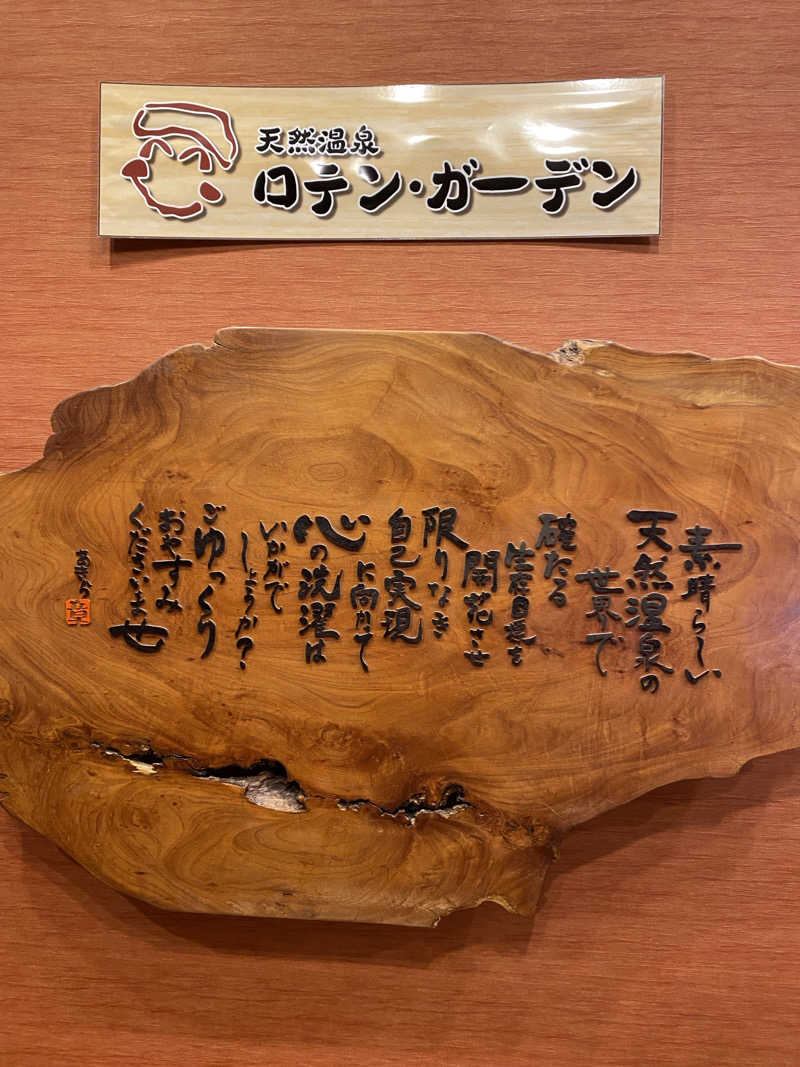 天然温泉
ロテン・ガーデン
素晴らしい
天然温泉の
世界で
確たる
生在自遊を
開花させ
限りなき
自己実現
に向けて
心の洗濯は
いかがで
しょうか?
ごゆっくり
おやすみ
くださいませ
あきら